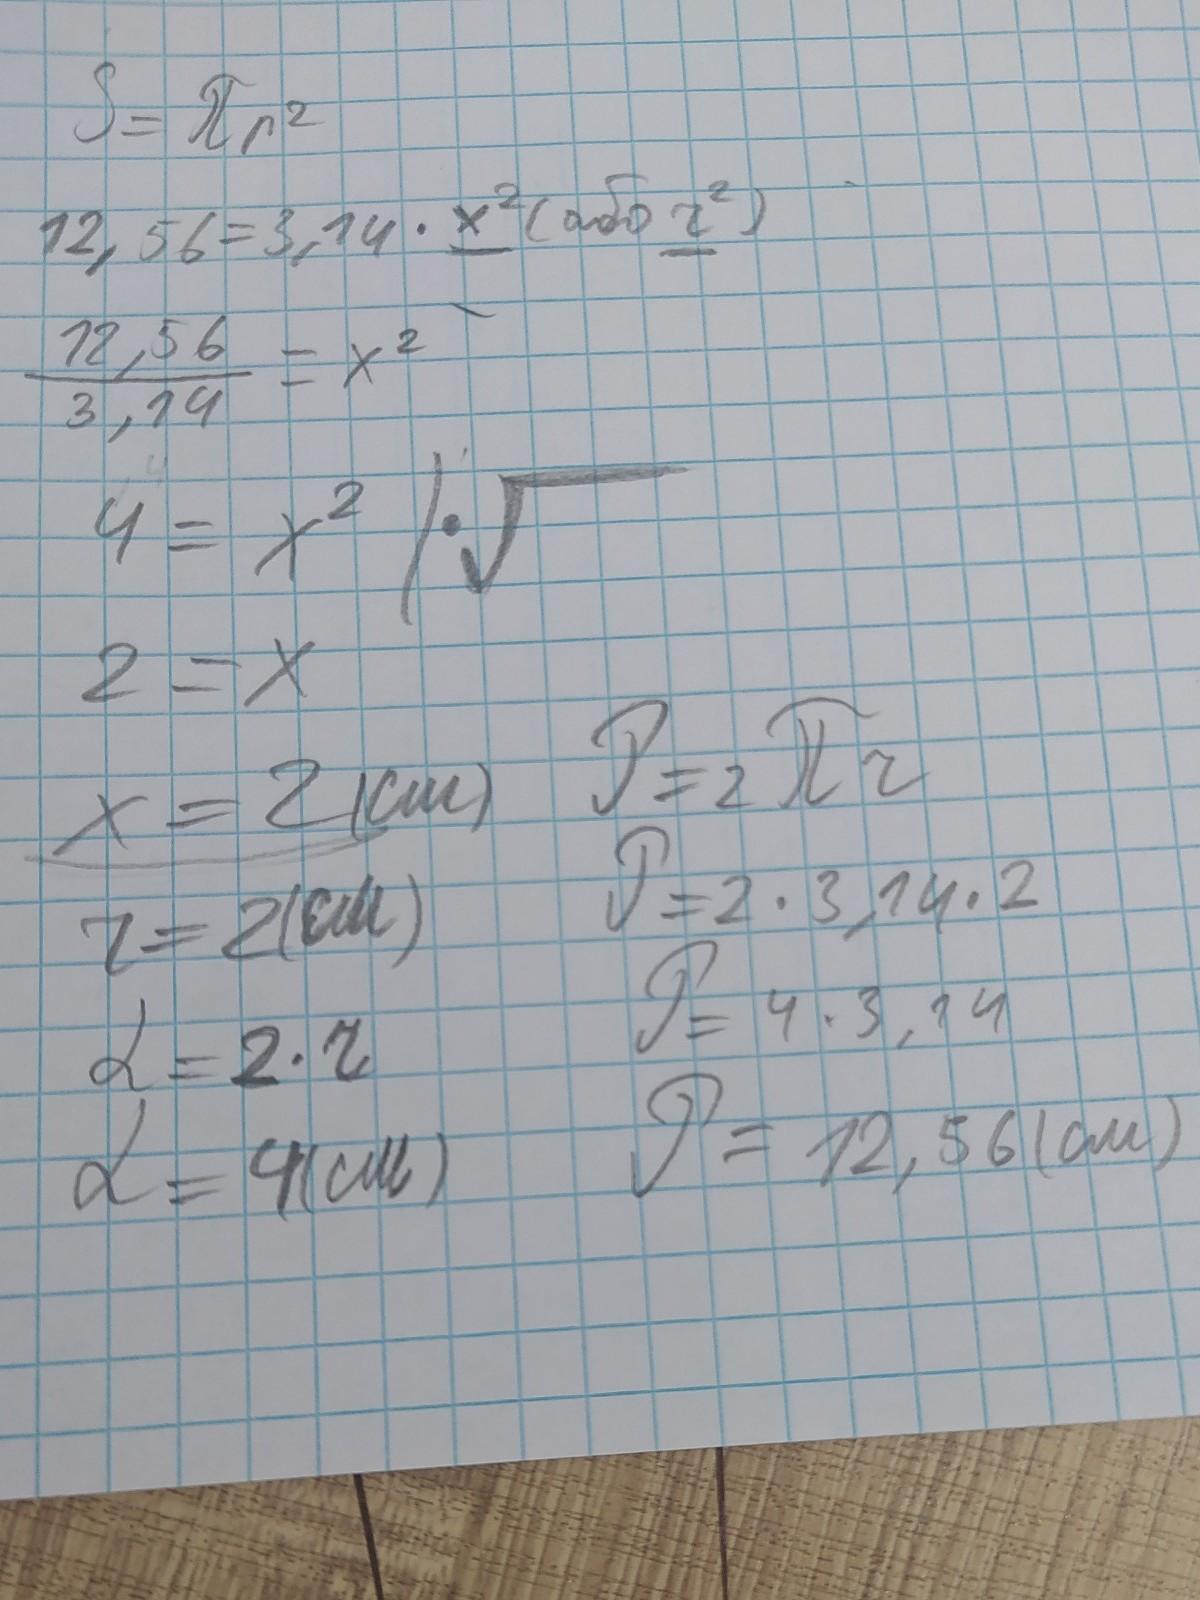 S = πr²
12,56 = 3,14 · x² (або r²)
12,56 / 3,14 = x²
4 = x² | · √
2 = x
x = 2 (см)
r = 2 (см)
d = 2 · r
d = 4 (см)
P = 2πr
P = 2 · 3,14 · 2
P = 4 · 3,14
P = 12,56 (см)